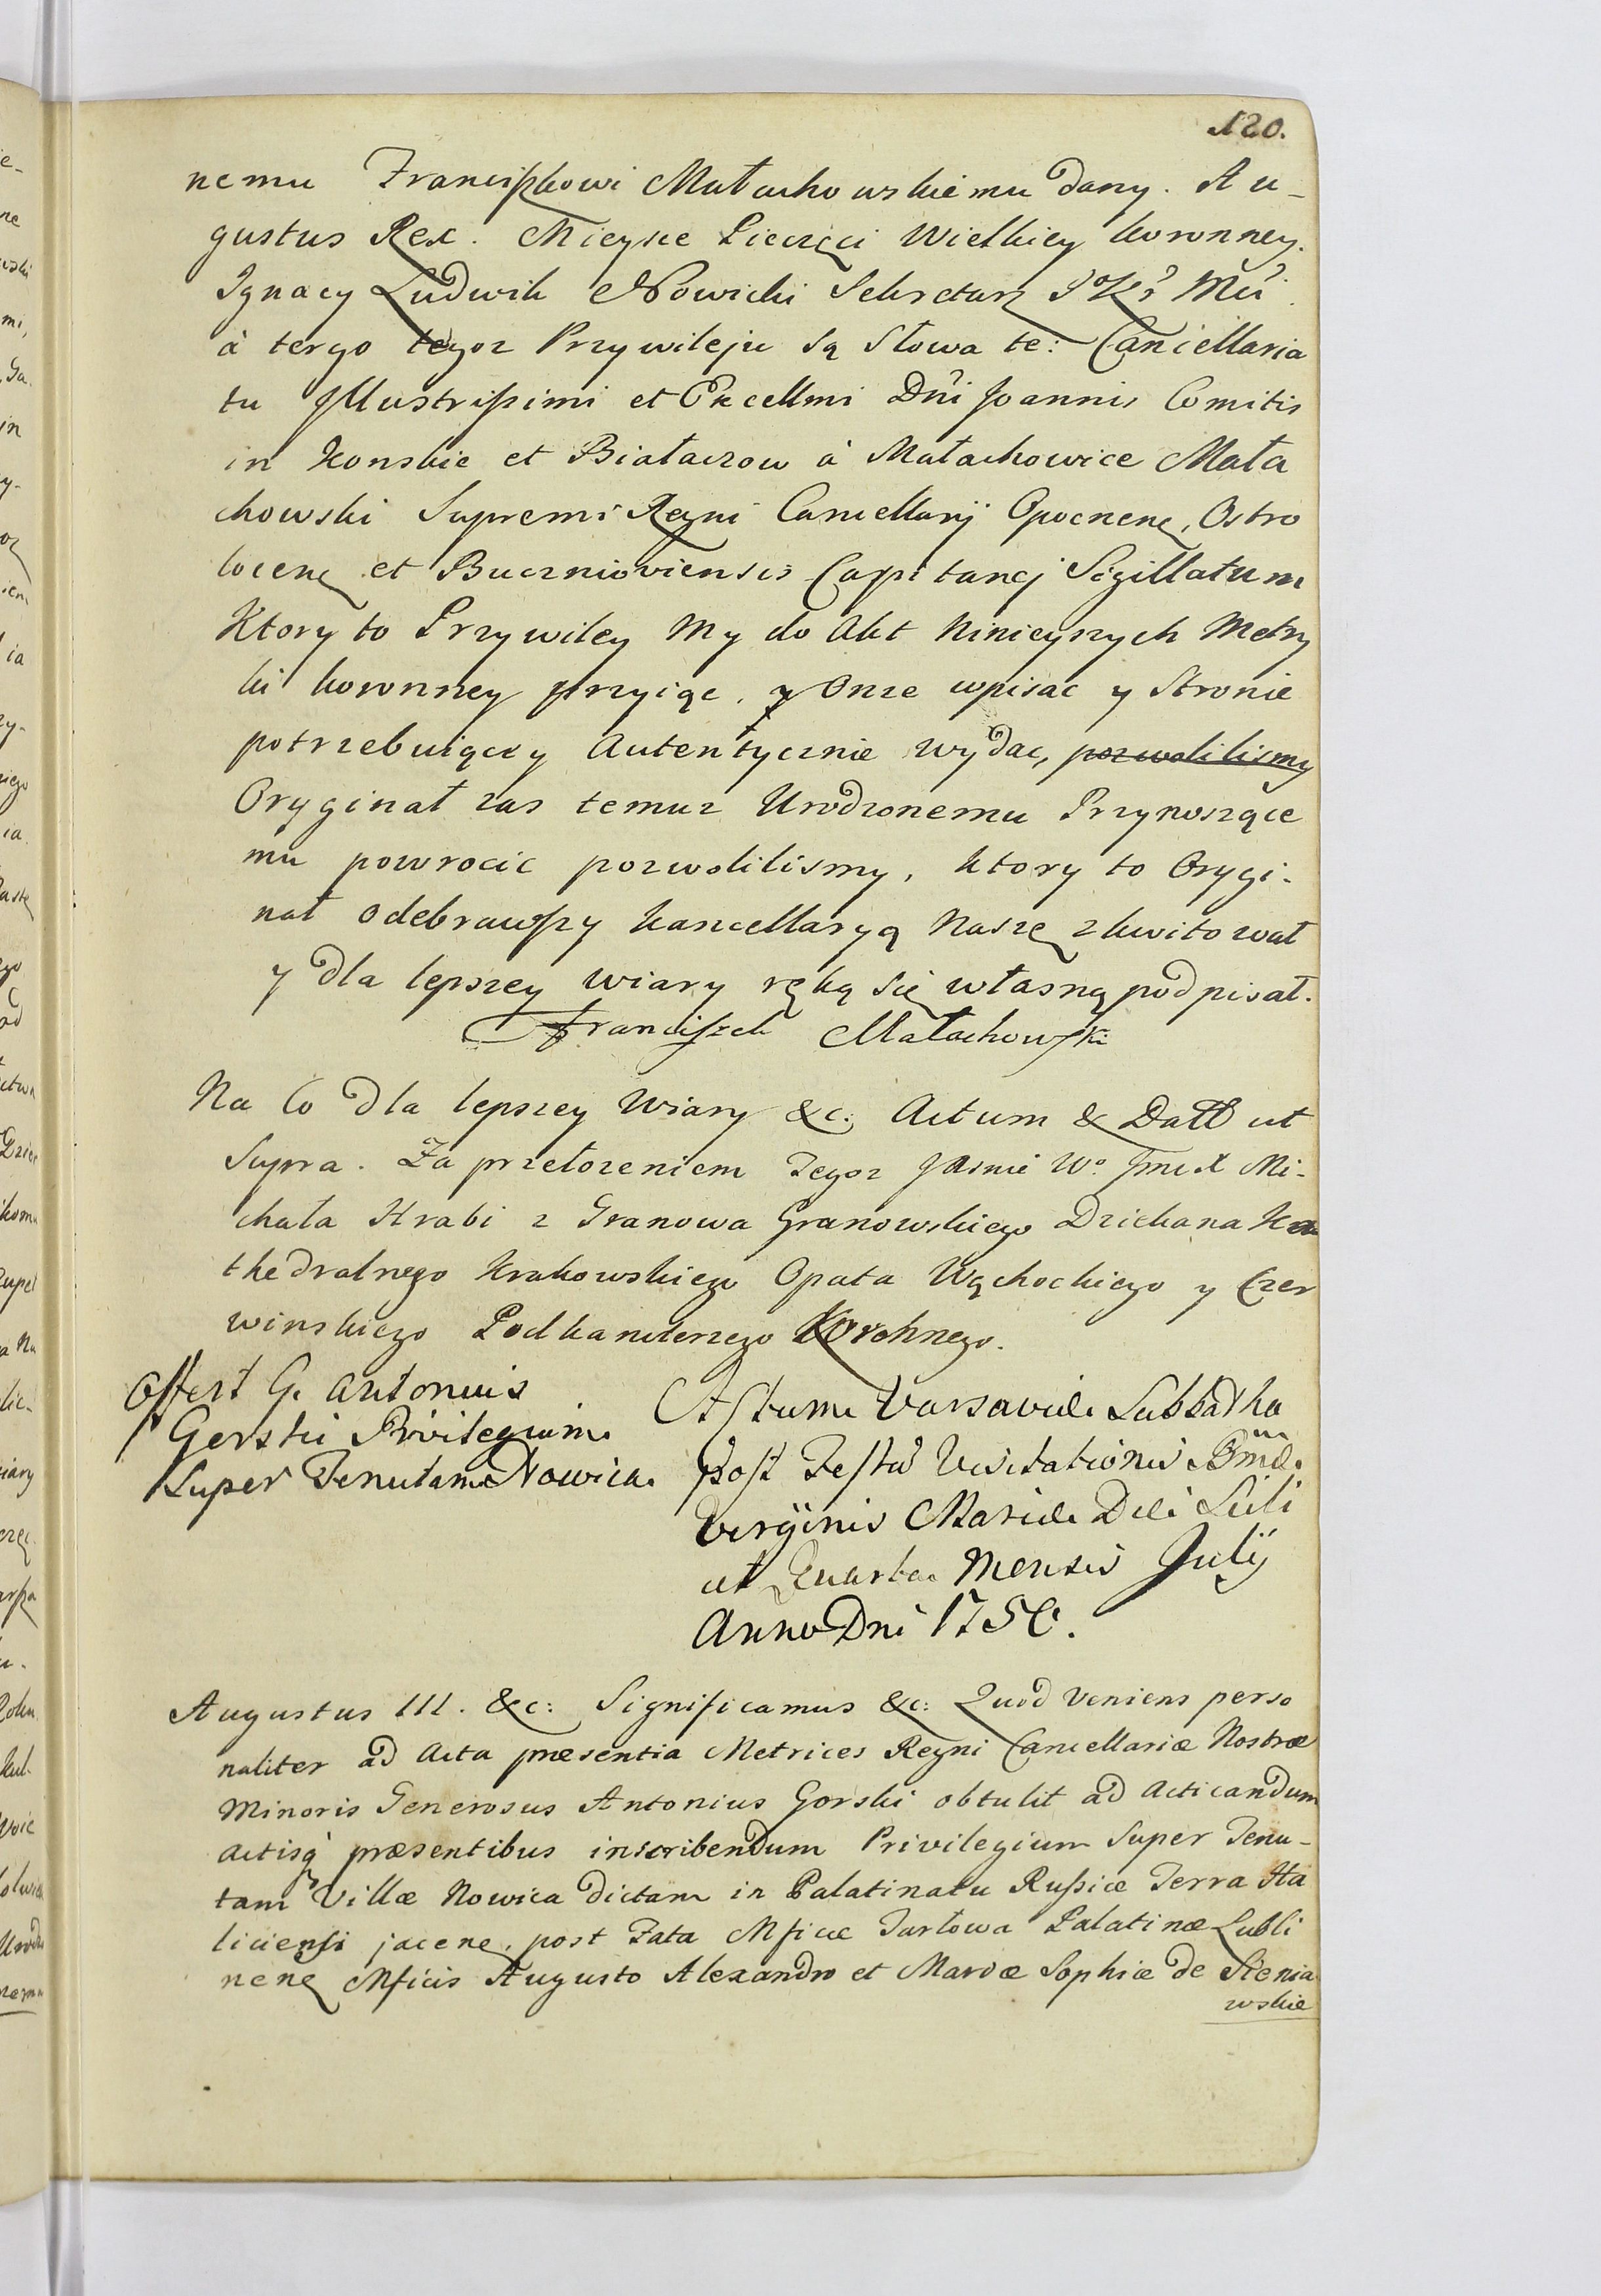 120.
nemu Franciszkowi Małachowskiemu dany. Au-
gustus Rex. Mieysce Pieczęci Wielkiey koronney.
Ignacy Ludwik Nowicki Sekretarz J K Mci
à tergo tegoz Przywileju są słowa te: Cancellaria
tu Jllustrissimi et Excellmi Dni Joannis Comitis
in Konskie et Białaczow à Małachowice Mała
chowski Supremi Regni Cancellarij Opocznenẽ, Ostro
locenẽ et Buczniowiensis Capitanej Sigillatum
Ktory to Przywiley My do Akt Ninieyszych Metry
ki koronney przyiąc, y Onze wpisac y Stronie
potrzebuiącey Autentycznie wydac, pozwolilismy
Oryginał zas temuz Urodzonemu Przynoszące
mu powrocic pozwolilismy, ktory to Orygi-
nał odebrawszy kancellaryą Naszę zkwitował
y dla lepszey wiary ręką się własną podpisał.
Franciszek Małachowski
Na Co dla lepszey Wiary &c. Actum & Datt ut
Supra. Za przełozeniem Tegoz JAsnie Wo JmcX Mi-
chała Hrabi z Granowa Granowskiego Dziekana Ka
thedralnego Krakowskiego Opata Wąchockiego y Czer
winskiego Podkanclerzego Koronnego.
Offert G. Antonius
Gorski Privilegium
Super Tenutam Nowica
Actum Varsaviæ Sabbatho
Post Festũ Visitationis Bmæ
Virginis Mariæ Diĕ Scili
ut Quarta Mensis Julij
Anno Dni 1750.
Augustus III. &c: Significamus &c: Quod Veniens perso
naliter ad Acta præsentia Metrices Regni Cancellariæ Nostræ
Minoris Generosus Antonius Gorski obtulit ad Acticandum
actisq præsentibus inscribendum Privilegium Super Tenu-
tam Villæ Nowica dictam in Palatinatu Russiæ Terra Ha
liciensi jacenẽ, post Fata Mficæ Tarłowa Palatinæ Lubli
nenẽ Mficis Augusto Alexandro et Mariæ Sophiæ de Sienia
wskie